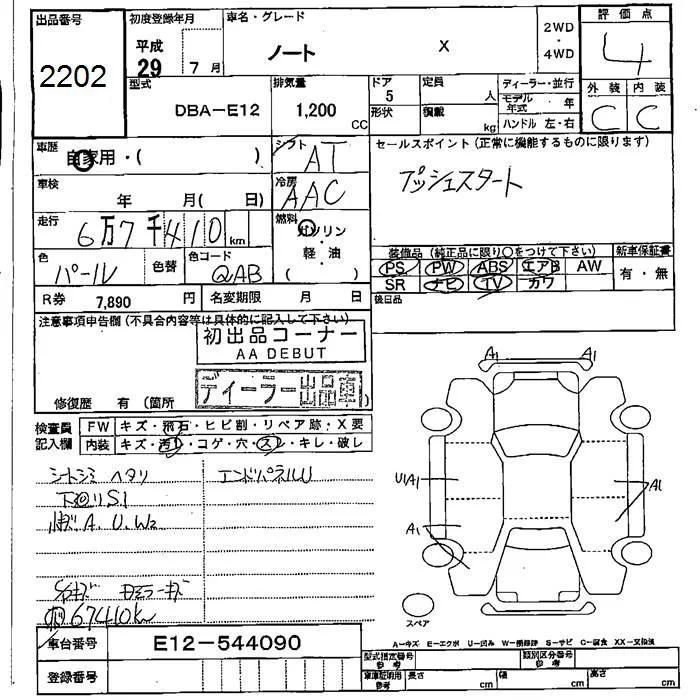 出品番号
2202
初度登録年月
平成
29 7月
車名・グレード
ノート X
2WD
・
4WD
評価点
4
型式
DBA-E12
排気量
1,200
CC
ドア
5
形状
定員
人
積載
kg
ディーラー・並行
モデル年式 年
ハンドル 左・右
外装 内装
C C
車歴
自家用・( )
シフト
AT
セールスポイント(正常に機能するものに限ります)
プッシュスタート
車検
年 月( 日)
冷房
AAC
走行
6万7千410km
燃料
ガソリン
・
軽・油
( )
色
パール
色替
色コード
QAB
装備品(純正品に限り○をつけて下さい)
新車保証書
PS PW ABS エアB AW
SR ナビ TV カワ
有・無
R券 7,890 円
名変期限 月 日
後日品
注意事項申告欄(不具合内容等は具体的に記入して下さい)
初出品コーナー
AA DEBUT
ディーラー出品車
修復歴 有(箇所 )
検査員
記入欄
FW キズ・飛石・ヒビ割・リペア跡・X要
内装 キズ・汚れ・コゲ・穴・スレ・キレ・破レ
シートシミ ヘタリ
エンドパネルU
下廻りS1
A. U. W2
67410k
A1 A1
U1A1
A1
A1
スペア
A-キズ E-エクボ U-凹み W-補修跡 S-サビ C-腐食 XX-交換済
車台番号
E12-544090
登録番号
型式指定番号
参考
類別区分番号
参考
車庫証明用
参考
長さ cm
幅 cm
高さ cm